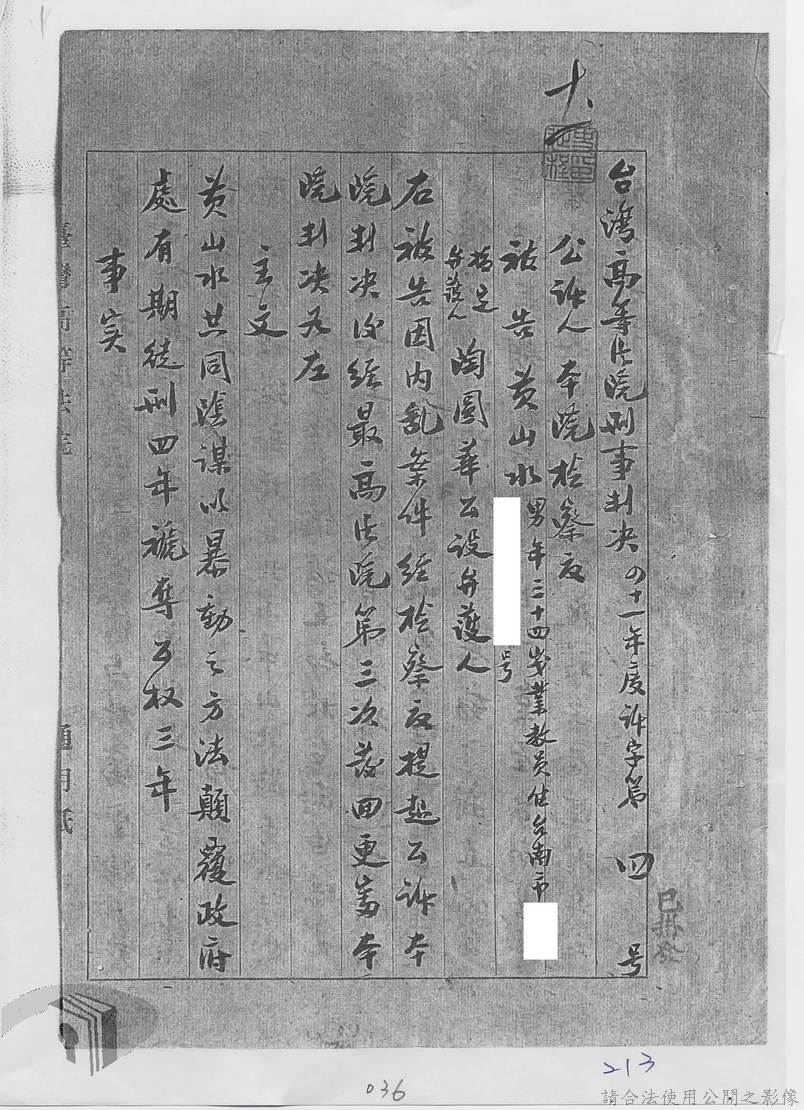 十
台灣高等法院刑事判決 四十一年度訴字第 四 号
公訴人 本院检察官
被告 黄山水 男年三十四岁業教員住台南市
号
指定
弁護人 陶圆華公設弁護人
右被告因内亂案件经检察官提起公訴本
院判决後经最高法院第三次發回更審本
院判决如左
主文
黄山水共同陰謀以暴動之方法顛覆政府
處有期徒刑四年褫奪公权三年
事实
臺灣高等法院
通用紙
213
036
請合法使用公開之影像